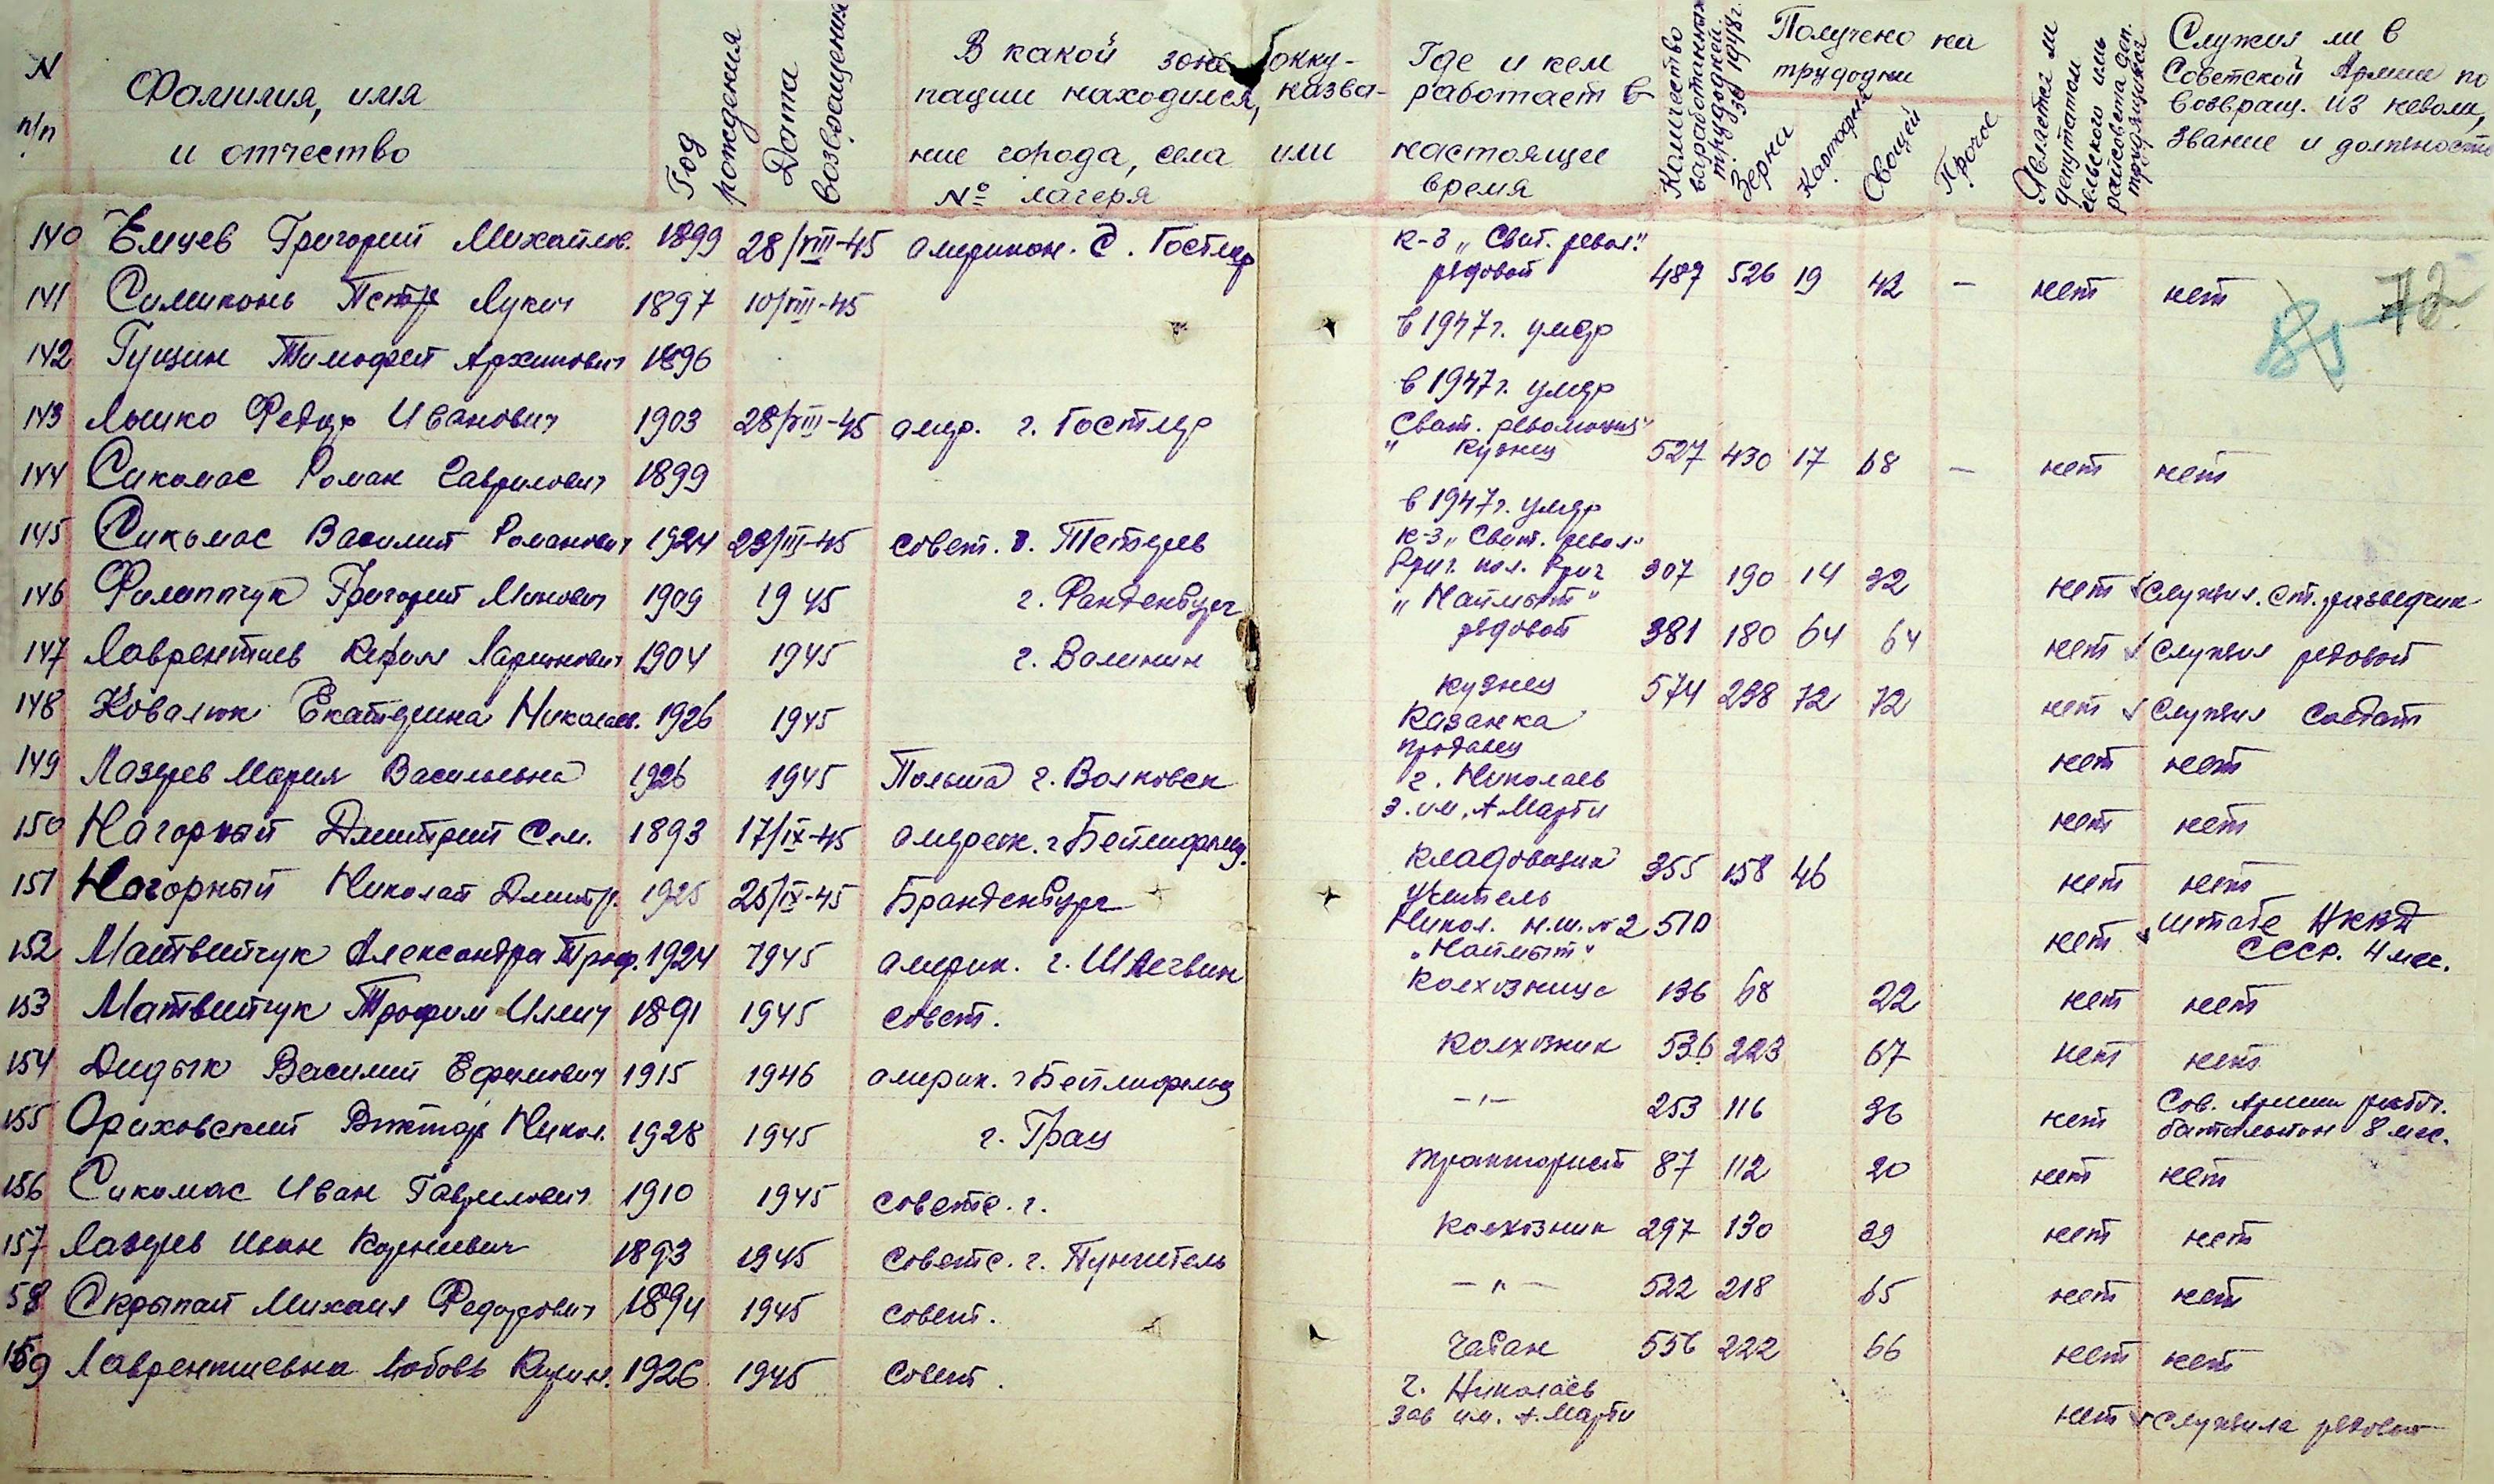 N п/п
Фамилия, имя и отчество
Год рождения
Дата возвращения
В какой зоне окку-
пации находился, назва-
ние города, села или
№ лагеря
Где и кем
работает в
настоящее
время
Количество
выработанных
трудодней
за 1948 г.
Получено на
трудодни
Зерна
Картофеля
Овощей
Прочее
Является ли
депутатом
сельского или
райсовета деп.
трудящихся
Служил ли в
Советской Армии по
возвращ. из неволи,
звание и должность
85 72
140 Емцев Григорий Михайлов. 1899 28/VIII-45 американ. г. Гостлар к-з „Свит. револ." рядовой 487 526 19 42 — нет нет
141 Симиконь Петр Лукич 1897 10/VIII-45 в 1947 г. умер
142 Гущин Тимофей Архипович 1896 в 1947 г. умер
143 Лышко Федор Иванович 1903 28/VIII-45 амер. г. Гостлер Свит. революция" " кузнец 527 430 17 68 — нет нет
144 Сикомас Роман Гаврилович 1899 в 1947 г. умер
145 Сикомас Василий Романович 1924 23/III-45 совет. г. Тетерев к-з „Свит. револ." Бриг. пол. Бриг 307 190 14 32 нет служил. ст. разведчик
146 Филипчук Григорий Минович 1909 1945 г. Франденбург „Наймыт" рядовой 381 180 64 64 нет служил рядовой
147 Лаврентиев Ларионович 1904 1945 г. Валинин кузнец 574 298 72 72 нет служил солдат
148 Ковалюк Екатерина Николаев. 1926 1945 Казанка продавец нет нет
149 Лазерев Мария Васильевна 1926 1945 Польша г. Волковск г. Николаев з. им. А Марти нет нет
150 Нагорный Дмитрий Сем. 1893 17/IX-45 америк. г Бейлифельд. кладовщик 355 158 46 нет нет
151 Нагорный Николай Дмитр. 1925 25/IX-45 Бранденбург учитель Никол. н.ш. № 2 510 нет штабе НКВД СССР. 4 мес.
152 Матвийчук Александра Троф. 1924 1945 америк. г. Шлегвин „Наймыт" колхозница 136 68 22 нет нет
153 Матвийчук Трофим Иллич 1891 1945 совет. колхозник 536 223 67 нет нет
154 Дидык Василий Ефимович 1915 1946 америк. г Бейлифельд —"— 253 116 36 нет Сов. Армии рабоч. батальйон 8 мес.
155 Ориховский Виктор Никол. 1928 1945 г. Грац тракторист 87 112 20 нет нет
156 Сикомас Иван Гаврилович 1910 1945 советс. г. колхозник 297 130 39 нет нет
157 Лазерев Иван Корнеевич 1893 1945 советс. г. Пунчитель —"— 522 218 65 нет нет
58 Скрыпай Михаил Федорович 1894 1945 совет. чабан 556 222 66 нет нет
159 Лаврентиевна Любовь 1926 1945 совет. г. Николаев зав им. А. Марти нет служила рядовой